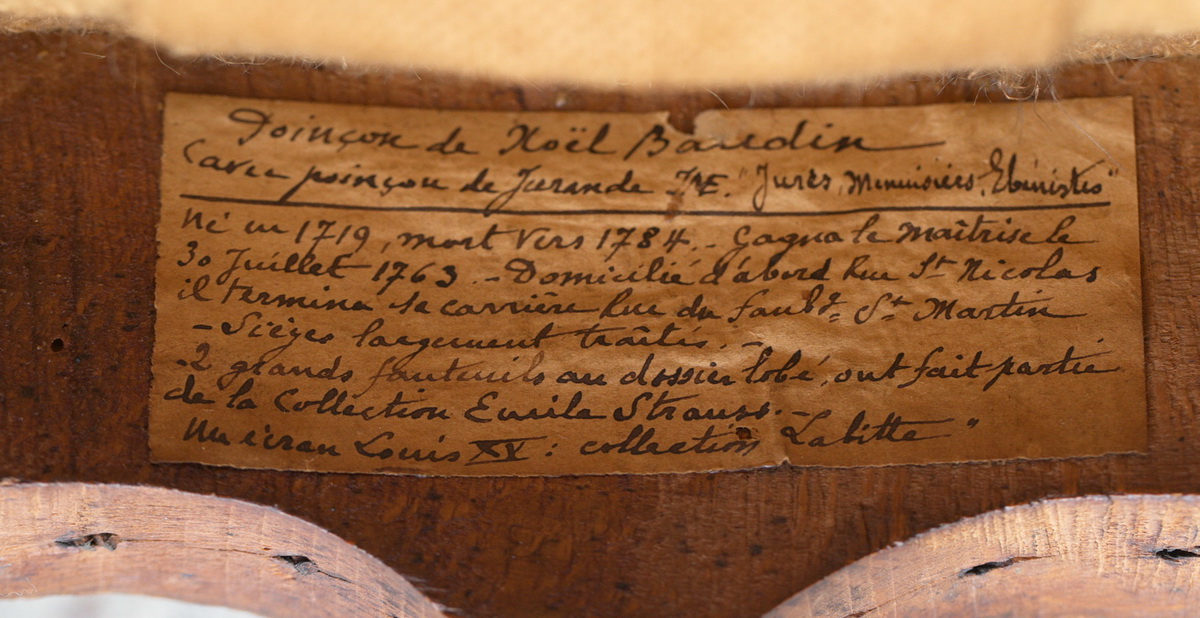 Poinçon de Noël Baudin
(avec poinçon de Jurande JME. "Jurés, Menuisiers, Ebénistes"
Né en 1719, mort vers 1784. - Gagna le Maîtrise le
30 Juillet 1763. - Domicilié d'abord Rue St Nicolas
il termina sa carrière Rue du Faubg. St Martin
- Sièges largement traîtés. -
-2 grands fauteuils au dossier lobé, ont fait partie
de la Collection Emile Strauss. -
Un écran Louis XV : collection Labitte "